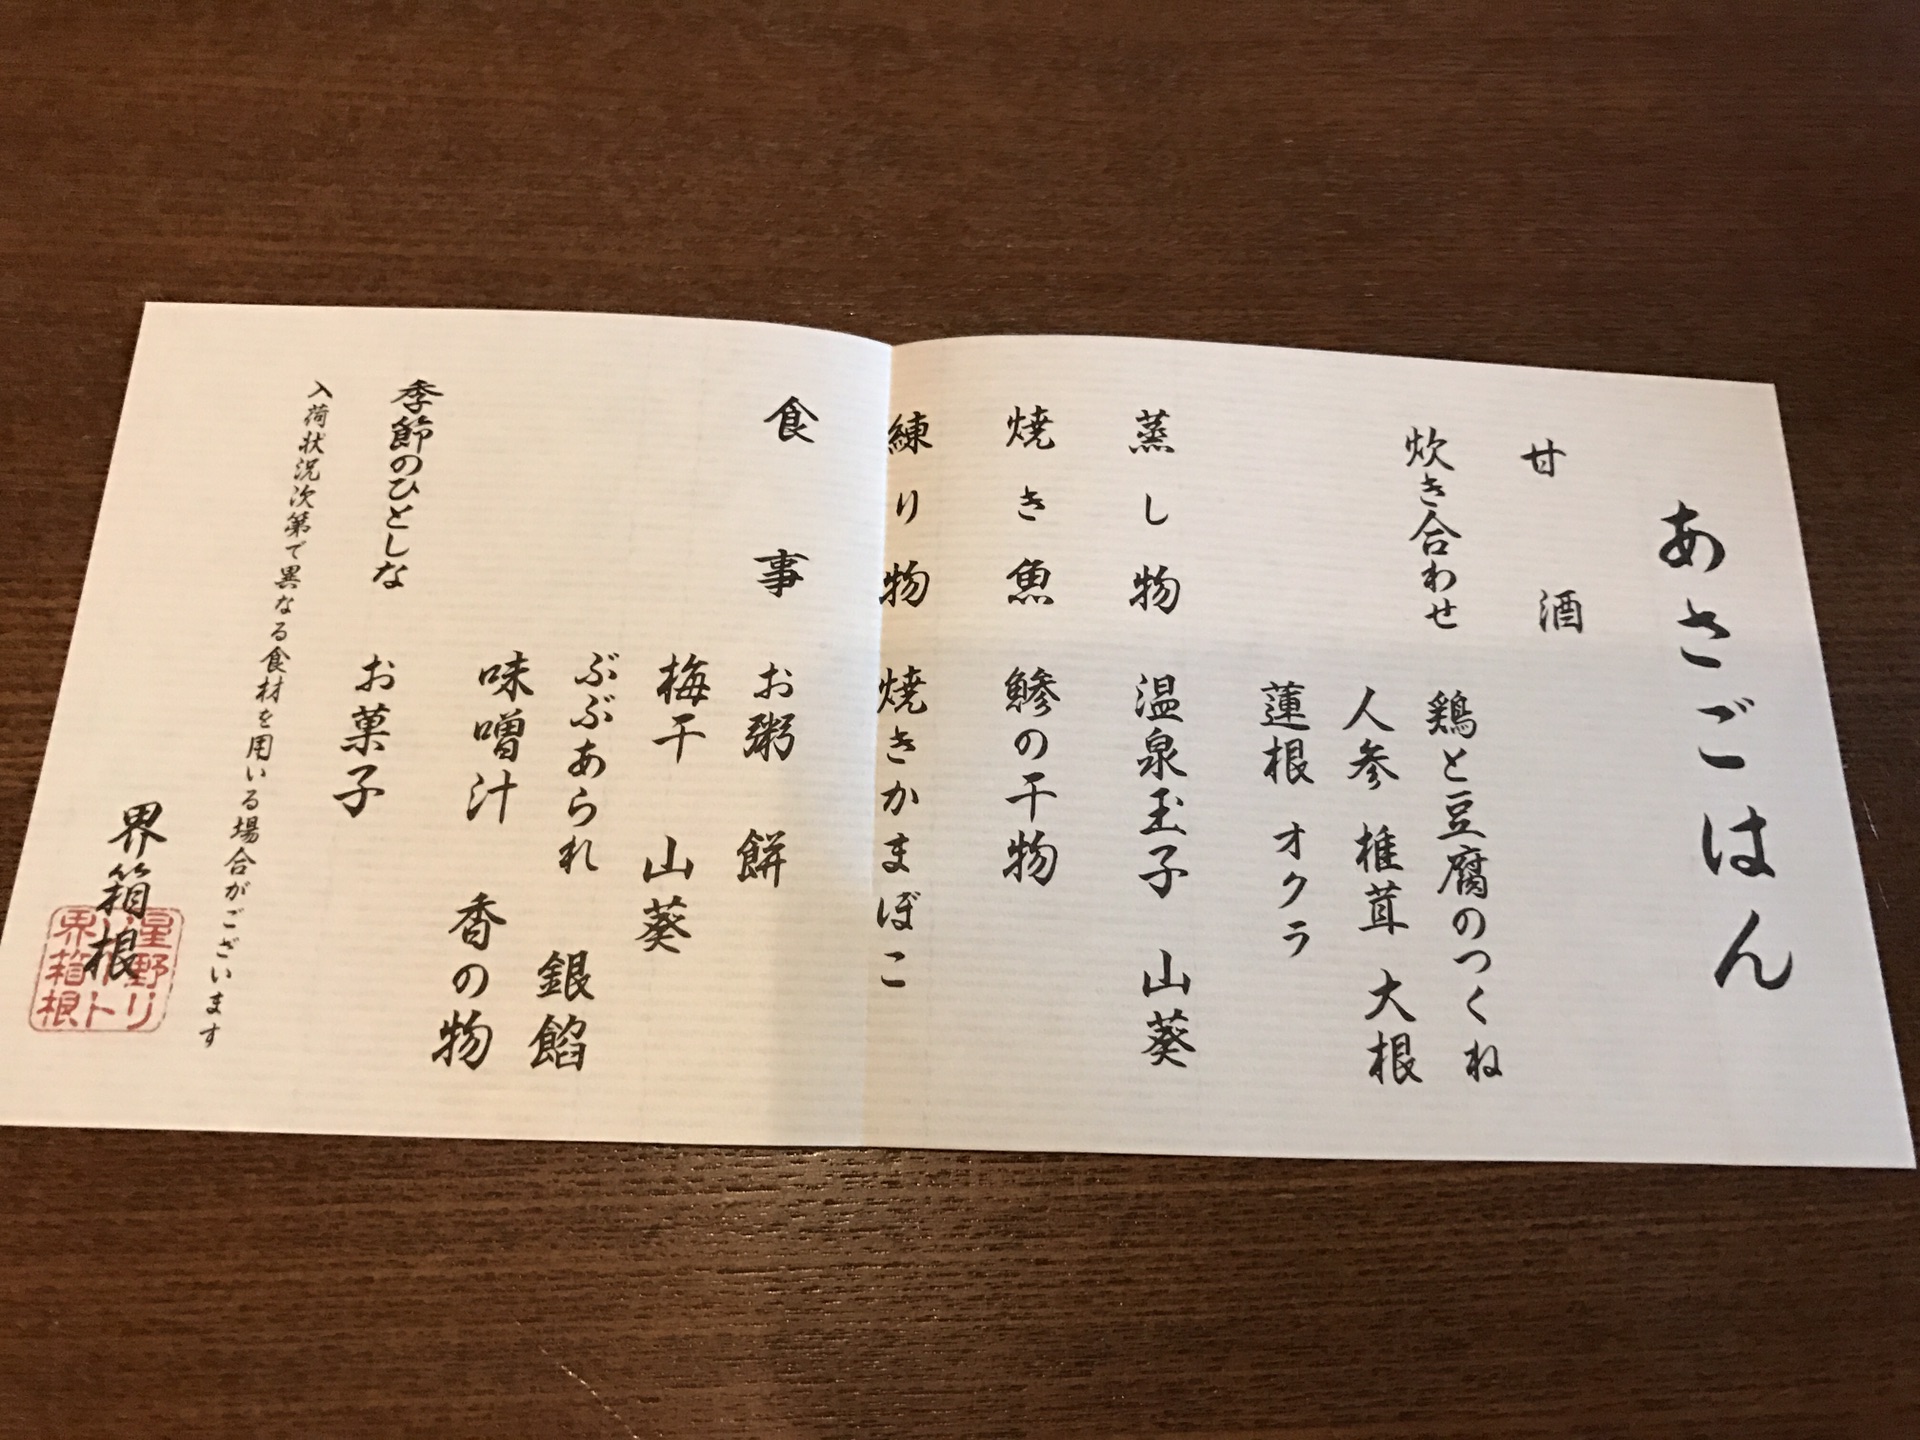 あさごはん
甘酒
炊き合わせ 鶏と豆腐のつくね
人参 椎茸 大根
蓮根 オクラ
蒸し物 温泉玉子 山葵
焼き魚 鯵の干物
練り物 焼きかまぼこ
食事 お粥 餅
梅干 山葵
ぶぶあられ 銀餡
味噌汁 香の物
季節のひとしな お菓子
入荷状況次第で異なる食材を用いる場合がございます
界箱根
星野リ
ト
界箱根